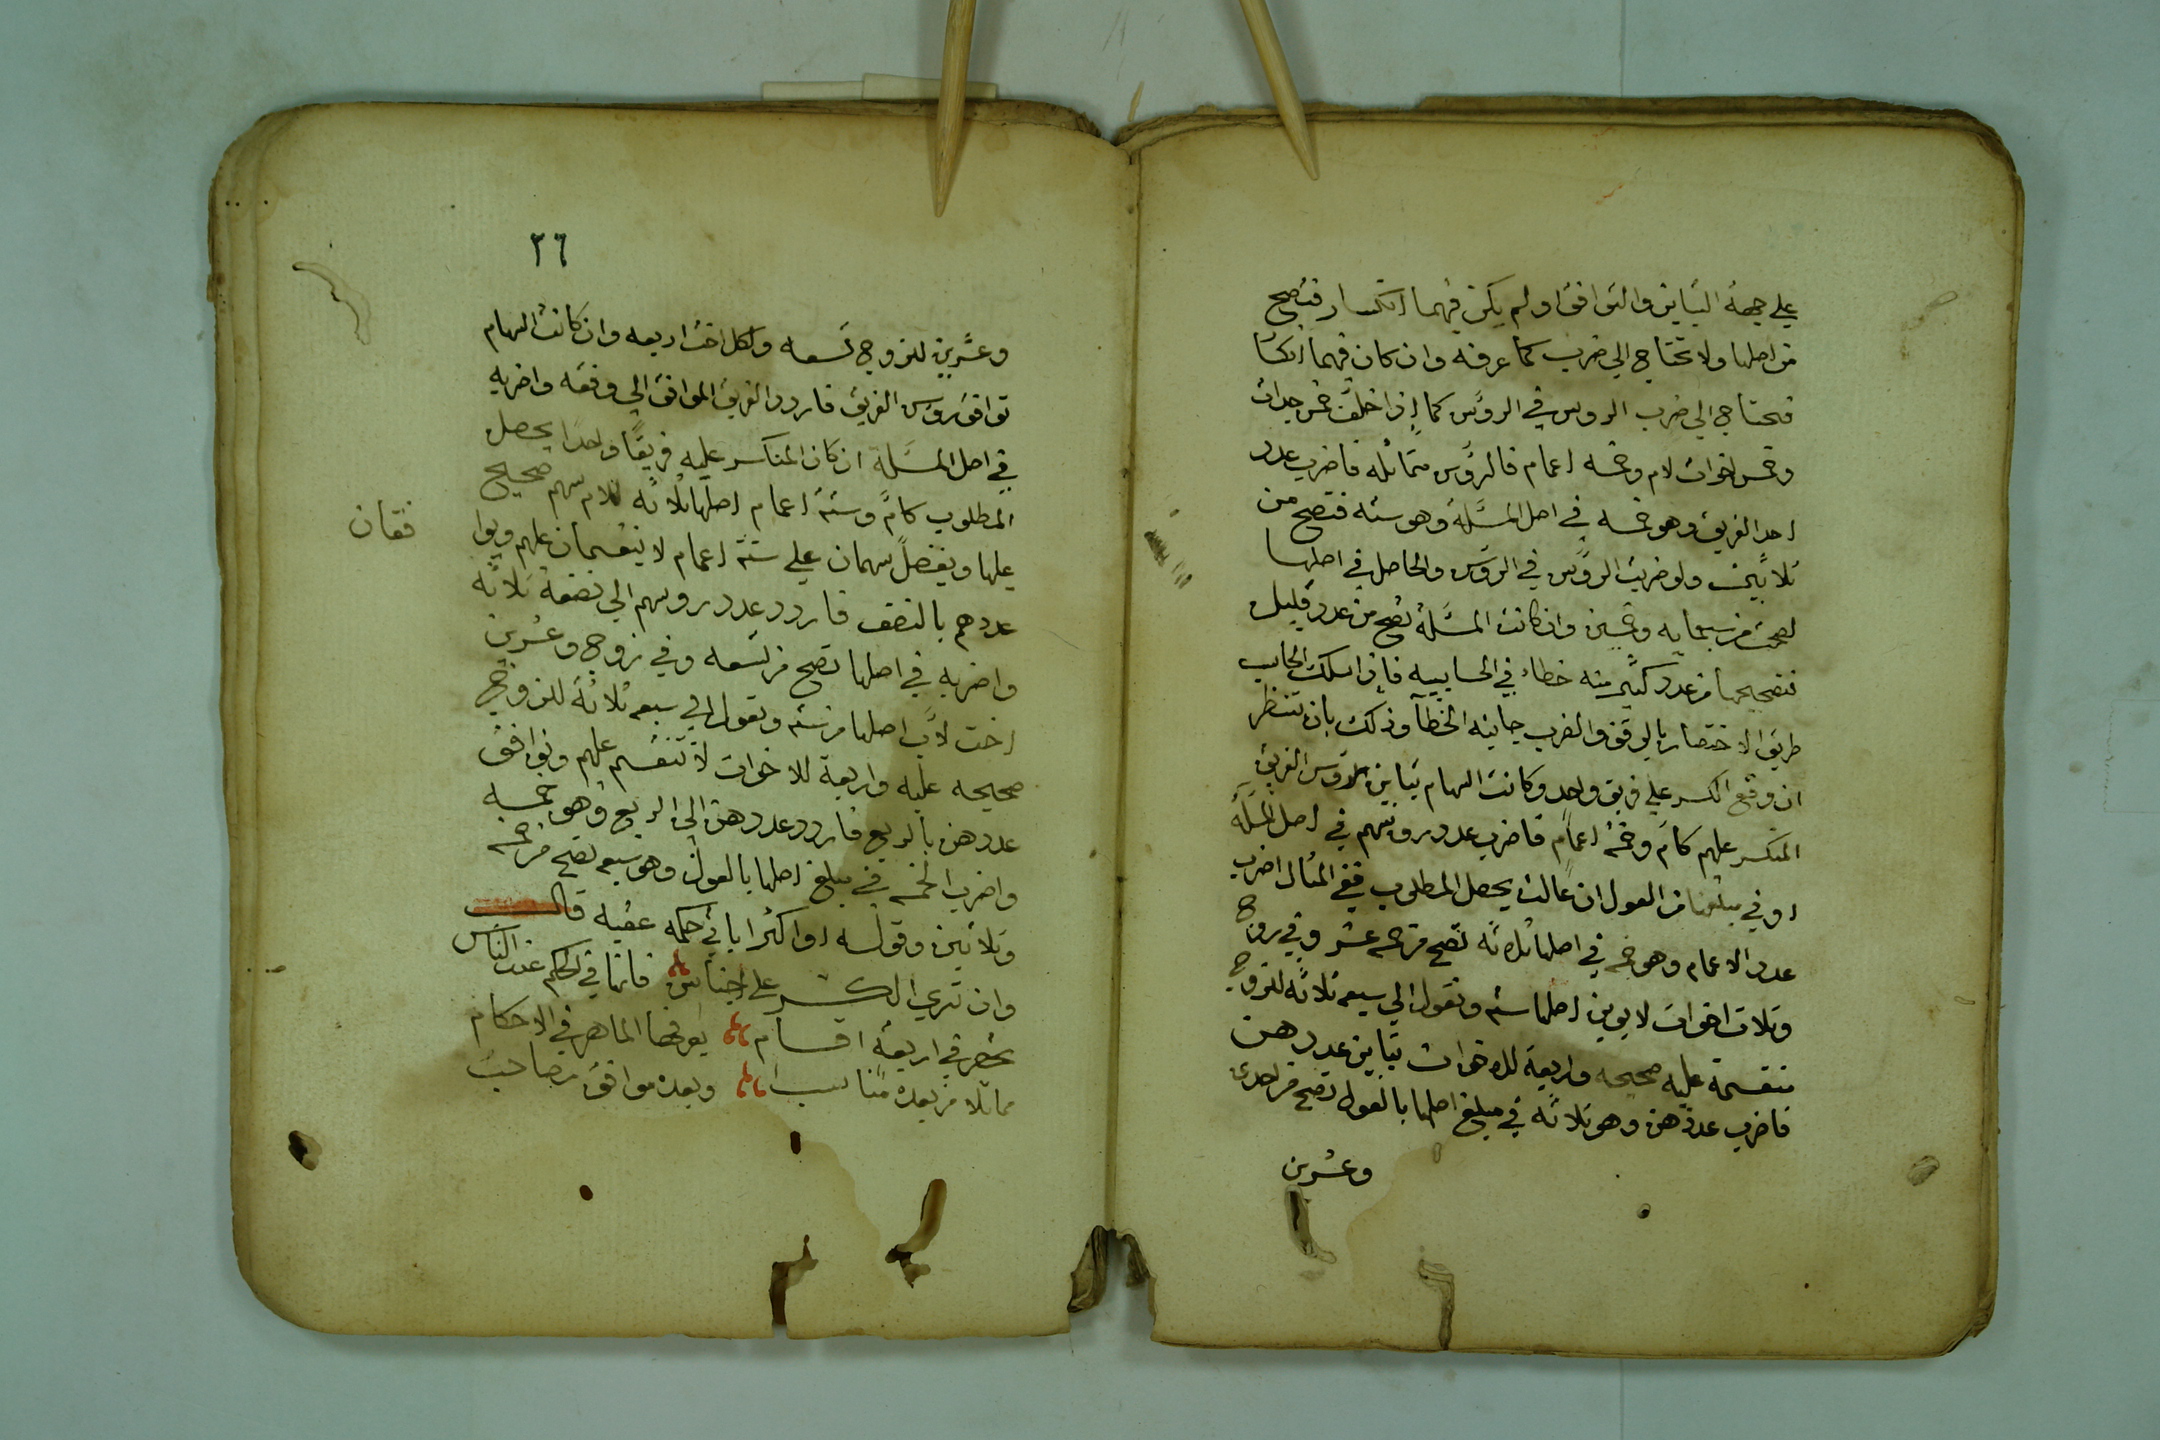 علي جهة التباين والتوافق او لم يكن فيهما انكسار فتصح
من اصلها ولا تحتاج الي ضرب كما عرفته وان كان فيهما انكسا
فتحتاج الي ضرب الروس في الروس كما اذا خلف خمس جدات
وخمس اخوات لام وخمسه اعمام فالروس متماثله فاضرب عدد
احد الفريق وهو خمسه في اصل المسئلة وهو سته فتصح من
ثلاثين ولو ضربت الروس في الروس والحاصل في اصلها
لصحت من سبعمايه وخمسين وان كانت المسئلة تصح من عدد قليل
فتصحيحها من عدد كثير منه خطاء في الحسابيه فاذا سلك الحاسب
طريق الاختصار بالوفق والضرب جانبه الخطآ وذلك بان تنظر
ان وقع الكسر علي فريق واحد وكانت السهام تباين روس الفريق
المنكسر عليهم كام وخمسة اعمام فاضرب عدد روسهم في اصل المسئلة
او في مبلغها من العول ان عالت يحصل المطلوب ففي المثال اضرب
عدد الاعمام وهو خمسه في اصلها ثلاثه تصح من خمسه عشر وفي زوج
وثلاث اخوات لابوين اصلها سته وتعول الي سبعه ثلاثه للزوج
منقسمة عليه صحيحه واربعة للاخوات تباين عددهن
فاضرب عددهن وهو ثلاثه في مبلغ اصلها بالعول تصح من احدى
وعشرين
٢٦
وعشرين للزوج تسعه ولكل اخت اربعه وان كانت السهام
توافق روس الفريق فاردد الفريق الموافق الي وفقه واضربه
في اصل المسئلة ان كان المنكسر عليه فريقًا واحدًا يحصل
المطلوب كام وستة اعمام اصلها ثلاثه للام سهم صحيح
عليها ويفضل سهمان علي ستة اعمام لا ينقسمان عليهم ويوا
فقان
عددهم بالنصف فاردد عدد روسهم الي نصفه ثلاثه
واضربه في اصلها تصح من تسعه وفي زوج وعشرين
اخت لاب اصلها من سته وتعول الي سبعه ثلاثة للزوج
صحيحه عليه واربعة للاخوات لا تنقسم عليهم وتوافق
عددهن بالربع فاردد عددهن الي الربع وهو خمسه
واضرب الخمسه في مبلغ اصلها بالعول وهو سبعه تصح من خمسه
وثلاثين وقوله او اكثرا ياتي حكمه عقبه قال
وان تري الكسر علي اجناس فانها في الحكم عند الناس
تحصر في اربعة اقسام يعرفها الماهر في الاحكام
مماثلا من بعده مناسب وبعده موافق مصاحب